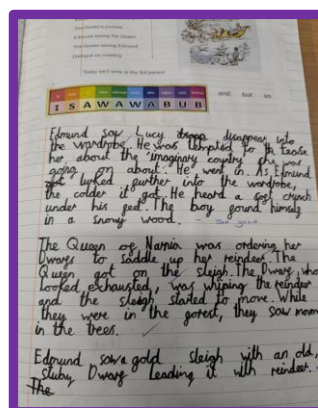 The Queen's journey
Edmund seeing the Queen
The Queen seeing Edmund
Dialogue on meeting
Today we'll write in the 3rd person
I S A W A W A B U B
and but so
Edmund saw Lucy disappear into
the wardrobe. He was tempted to tease
her about the 'imaginary country she was
going on about. He went in. As Edmund
lurked further into the wardrobe,
the colder it got. He heard a soft crunch
under his feet. The boy found himself
in a snowy wood.
The Queen of Narnia was ordering her
Dwarf to saddle up her reindeer. The
Queen got on the sleigh. The Dwarf, who
looked exhausted, was whiping the reindeer
and the sleigh started to move. While
they were in the forest, they saw movem
in the trees.
Edmund saw a gold sleigh with an old,
stuby Dwarf leading it with reindeer.
The